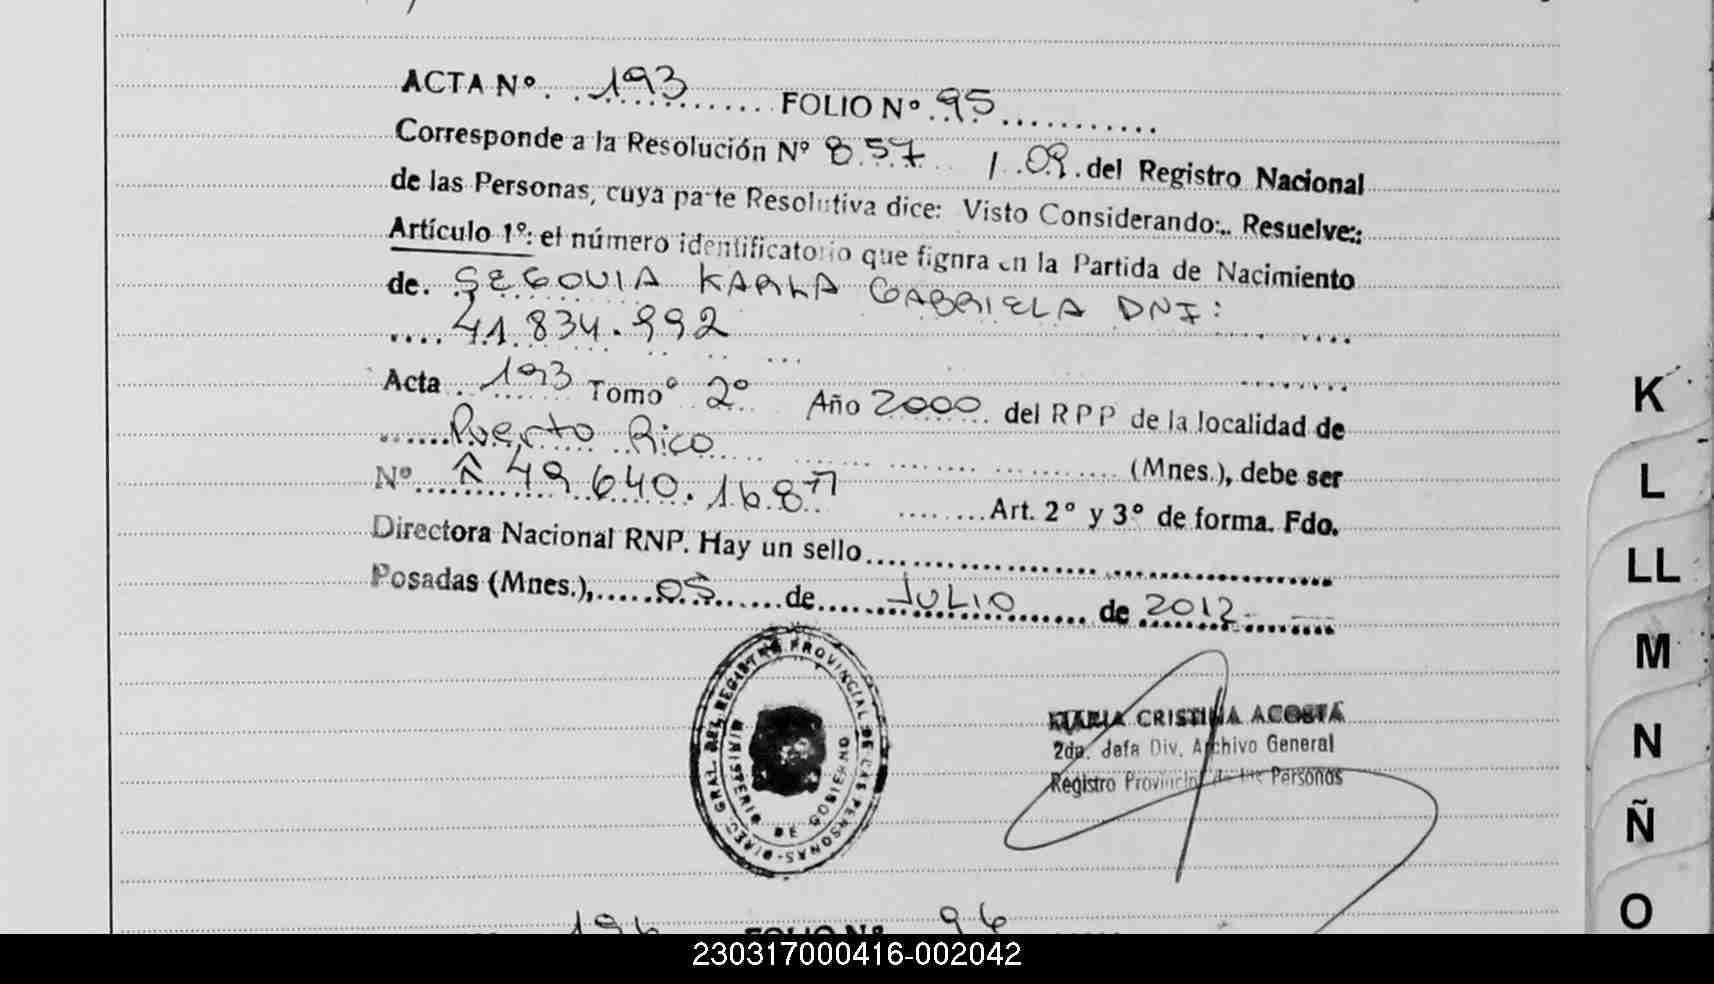 ACTA Nº. .193........... FOLIO Nº 95............
Corresponde a la Resolución Nº 857 / .09.del Registro Nacional
de las Personas, cuya pa-te Resolutiva dice: Visto Considerando:.. Resuelve::
Artículo 1º: el número identificatorio que fignra en la Partida de Nacimiento
de. SEGOVIA KARLA GABRIELA DNI:
.... 41.834.992 ....
Acta . 193 Tomoº 2º Año 2000 del RPP de la localidad de
.......Puerto Rico
.................... (Mnes.), debe ser
Nº 49.640.168"
........Art. 2º y 3º de forma. Fdo.
Directora Nacional RNP. Hay un sello...............................
Posadas (Mnes.),......05.......de.....JULIO.......de 2012
DIREC. GRAL. DEL REGISTRO PROVINCIAL DE LAS PERSONAS
MINISTERIO DE GOBIERNO
MARIA CRISTINA ACOSTA
2da. Jefa Div. Archivo General
Registro Provincial de las Personas
FOLIO Nº 96
K
L
LL
M
N
Ñ
O
230317000416-002042